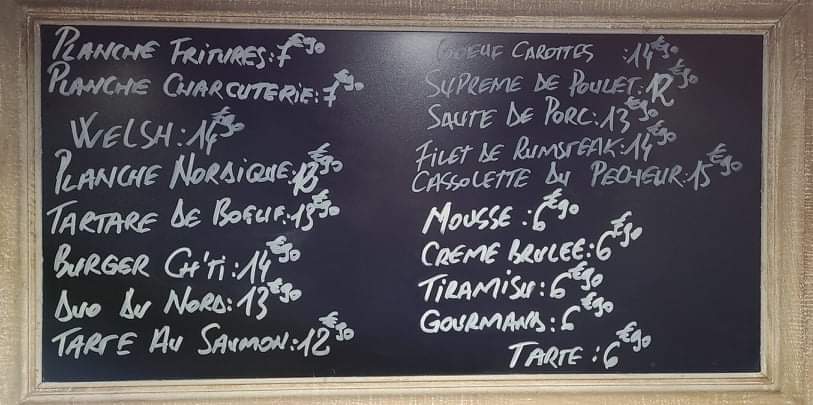 PLANCHE FRITURES:7€90
PLANCHE CHARCUTERIE:7€90
WELSH:14€90
PLANCHE NORDIQUE:13€90
TARTARE DE BOEUF:15€90
BURGER CH'TI:14€90
DUO DU NORD:13€90
TARTE AU SAUMON:12€90
BOEUF CAROTTES :14€90
SUPREME DE POULET:12€90
SAUTE DE PORC:13€90
FILET DE RUMSTEAK:14€90
CASSOLETTE DU PECHEUR:15€90
MOUSSE:6€90
CREME BRULEE:6€90
TIRAMISU:6€90
GOURMAND:6€90
TARTE:6€90